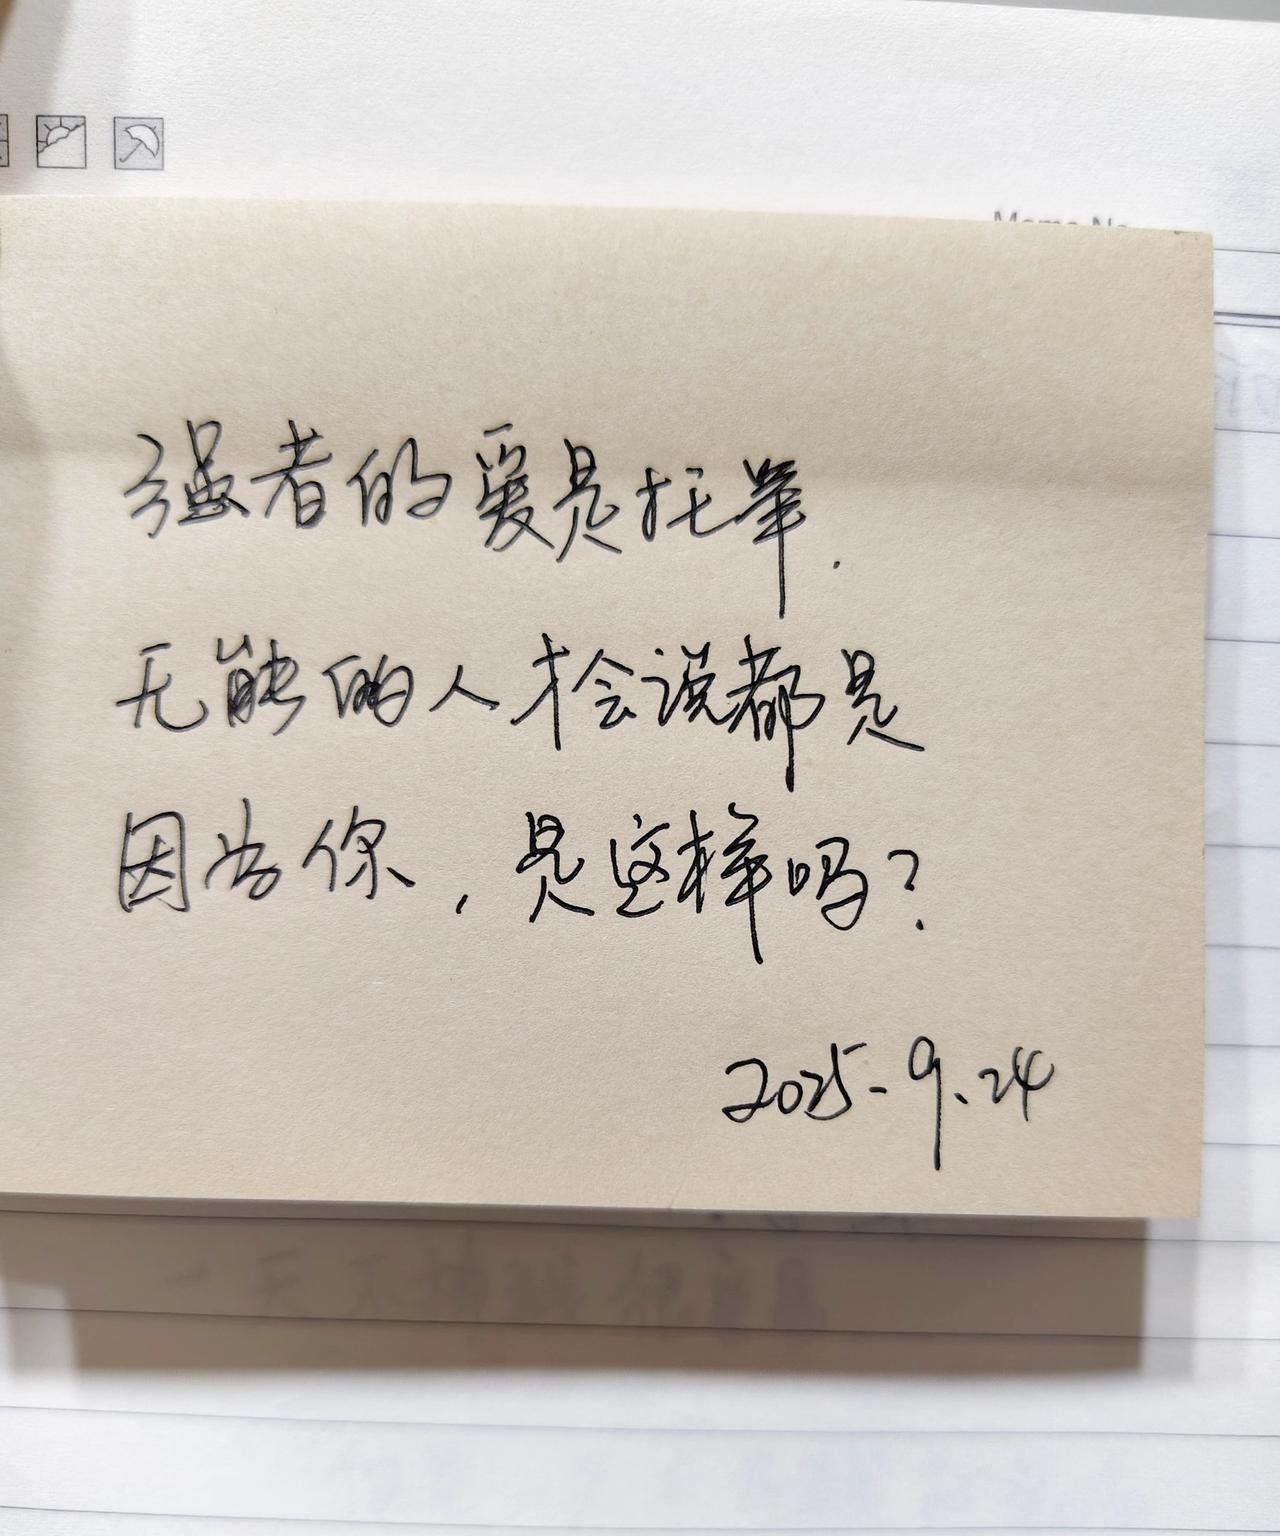 强者的爱是托举.
无能的人才会说都是
因为你,是这样吗?
2025-9.24